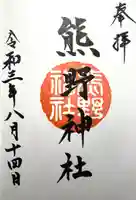 奉拝
熊野神社
令和三年八月十四日